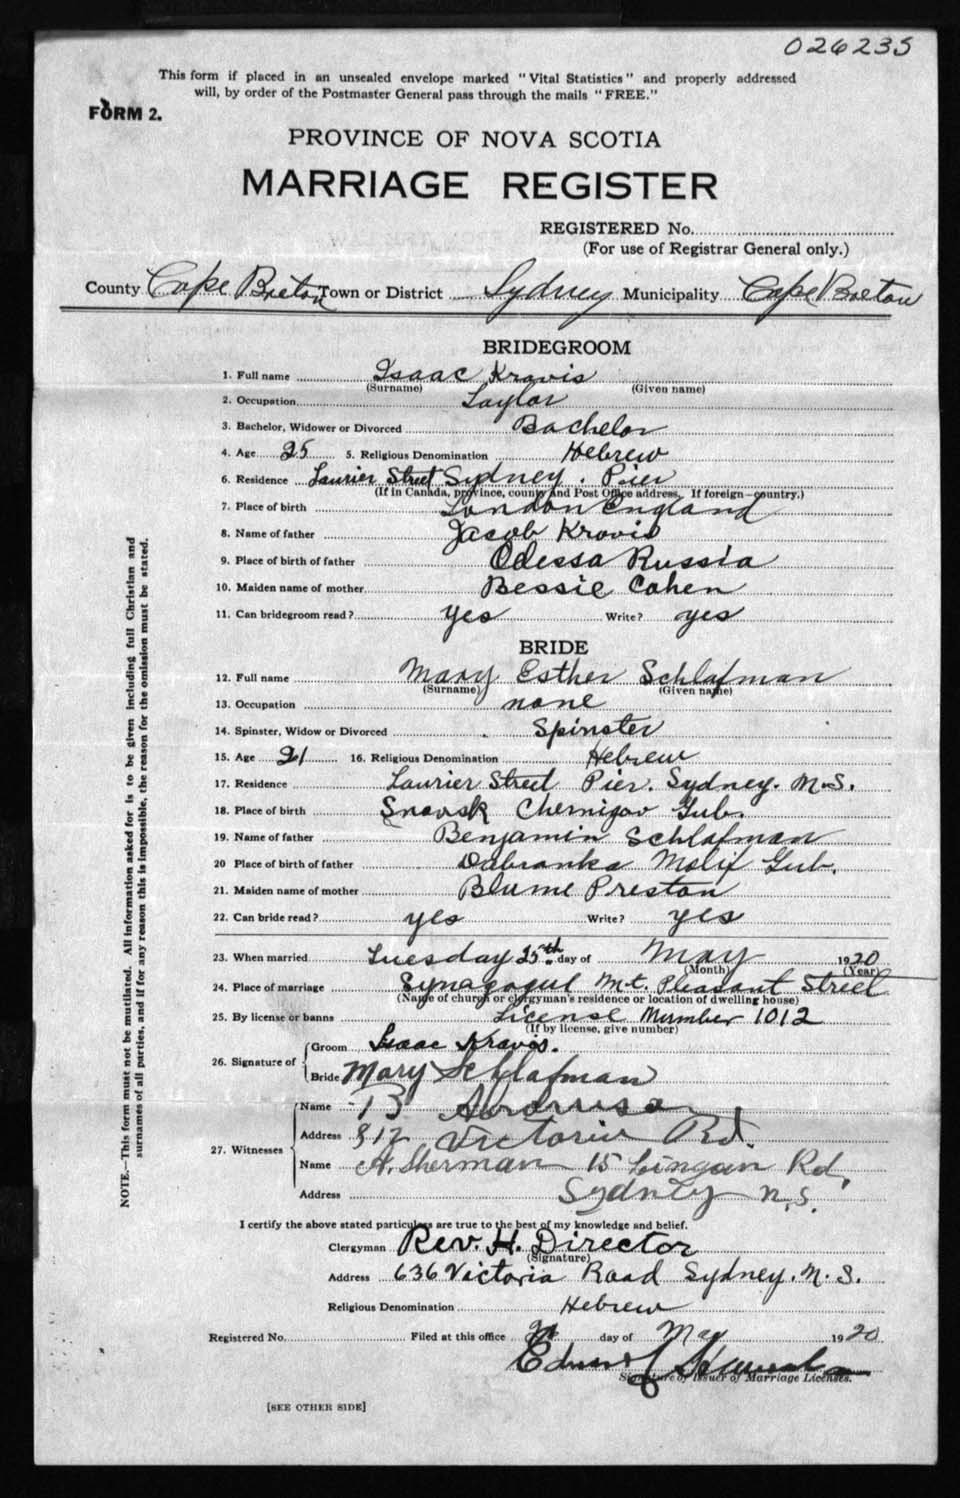 026235
This form if placed in an unsealed envelope marked "Vital Statistics" and properly addressed
will, by order of the Postmaster General pass through the mails "FREE."
FORM 2.
PROVINCE OF NOVA SCOTIA
MARRIAGE REGISTER
REGISTERED No.
(For use of Registrar General only.)
County Cape Breton Town or District Sydney Municipality Cape Breton
BRIDEGROOM
1. Full name Isaac Kravis
(Surname) (Given name)
2. Occupation Taylor
3. Bachelor, Widower or Divorced Bachelor
4. Age 25 5. Religious Denomination Hebrew
6. Residence Laurier Street Sydney. Pier
(If in Canada, province, county and Post Office address. If foreign—country.)
7. Place of birth London England
8. Name of father Jacob Kravis
9. Place of birth of father Odessa Russia
10. Maiden name of mother Bessie Cohen
11. Can bridegroom read? yes Write? yes
BRIDE
12. Full name Mary Esther Schlafman
(Surname) (Given name)
13. Occupation none
14. Spinster, Widow or Divorced Spinster
15. Age 21 16. Religious Denomination Hebrew
17. Residence Laurier Street Pier. Sydney. N.S.
18. Place of birth Snovsk Chernigov Gub.
19. Name of father Benjamin Schlafman
20 Place of birth of father Dabranka Molif Gub.
21. Maiden name of mother Blume Preston
22. Can bride read? yes Write? yes
23. When married Tuesday 25th day of May 1920
(Month) (Year)
24. Place of marriage Synagogue Mt. Pleasant Street
(Name of church or clergyman's residence or location of dwelling house)
25. By license or banns License Number 1012
(If by license, give number)
26. Signature of Groom Isaac Kravis.
Bride Mary Schlafman
27. Witnesses Name B
Address 812 Victoria Rd.
Name A. Sherman 15 Lingan Rd.
Address Sydney N.S.
I certify the above stated particulars are true to the best of my knowledge and belief.
Clergyman Rev. H. Director
(Signature)
Address 636 Victoria Road Sydney. N.S.
Religious Denomination Hebrew
Registered No. Filed at this office day of May 1920
Signature of Issuer of Marriage Licenses.
[SEE OTHER SIDE]
NOTE.—This form must not be mutilated. All information asked for is to be given including full Christian and
surnames of all parties, and if for any reason this is impossible, the reason for the omission must be stated.